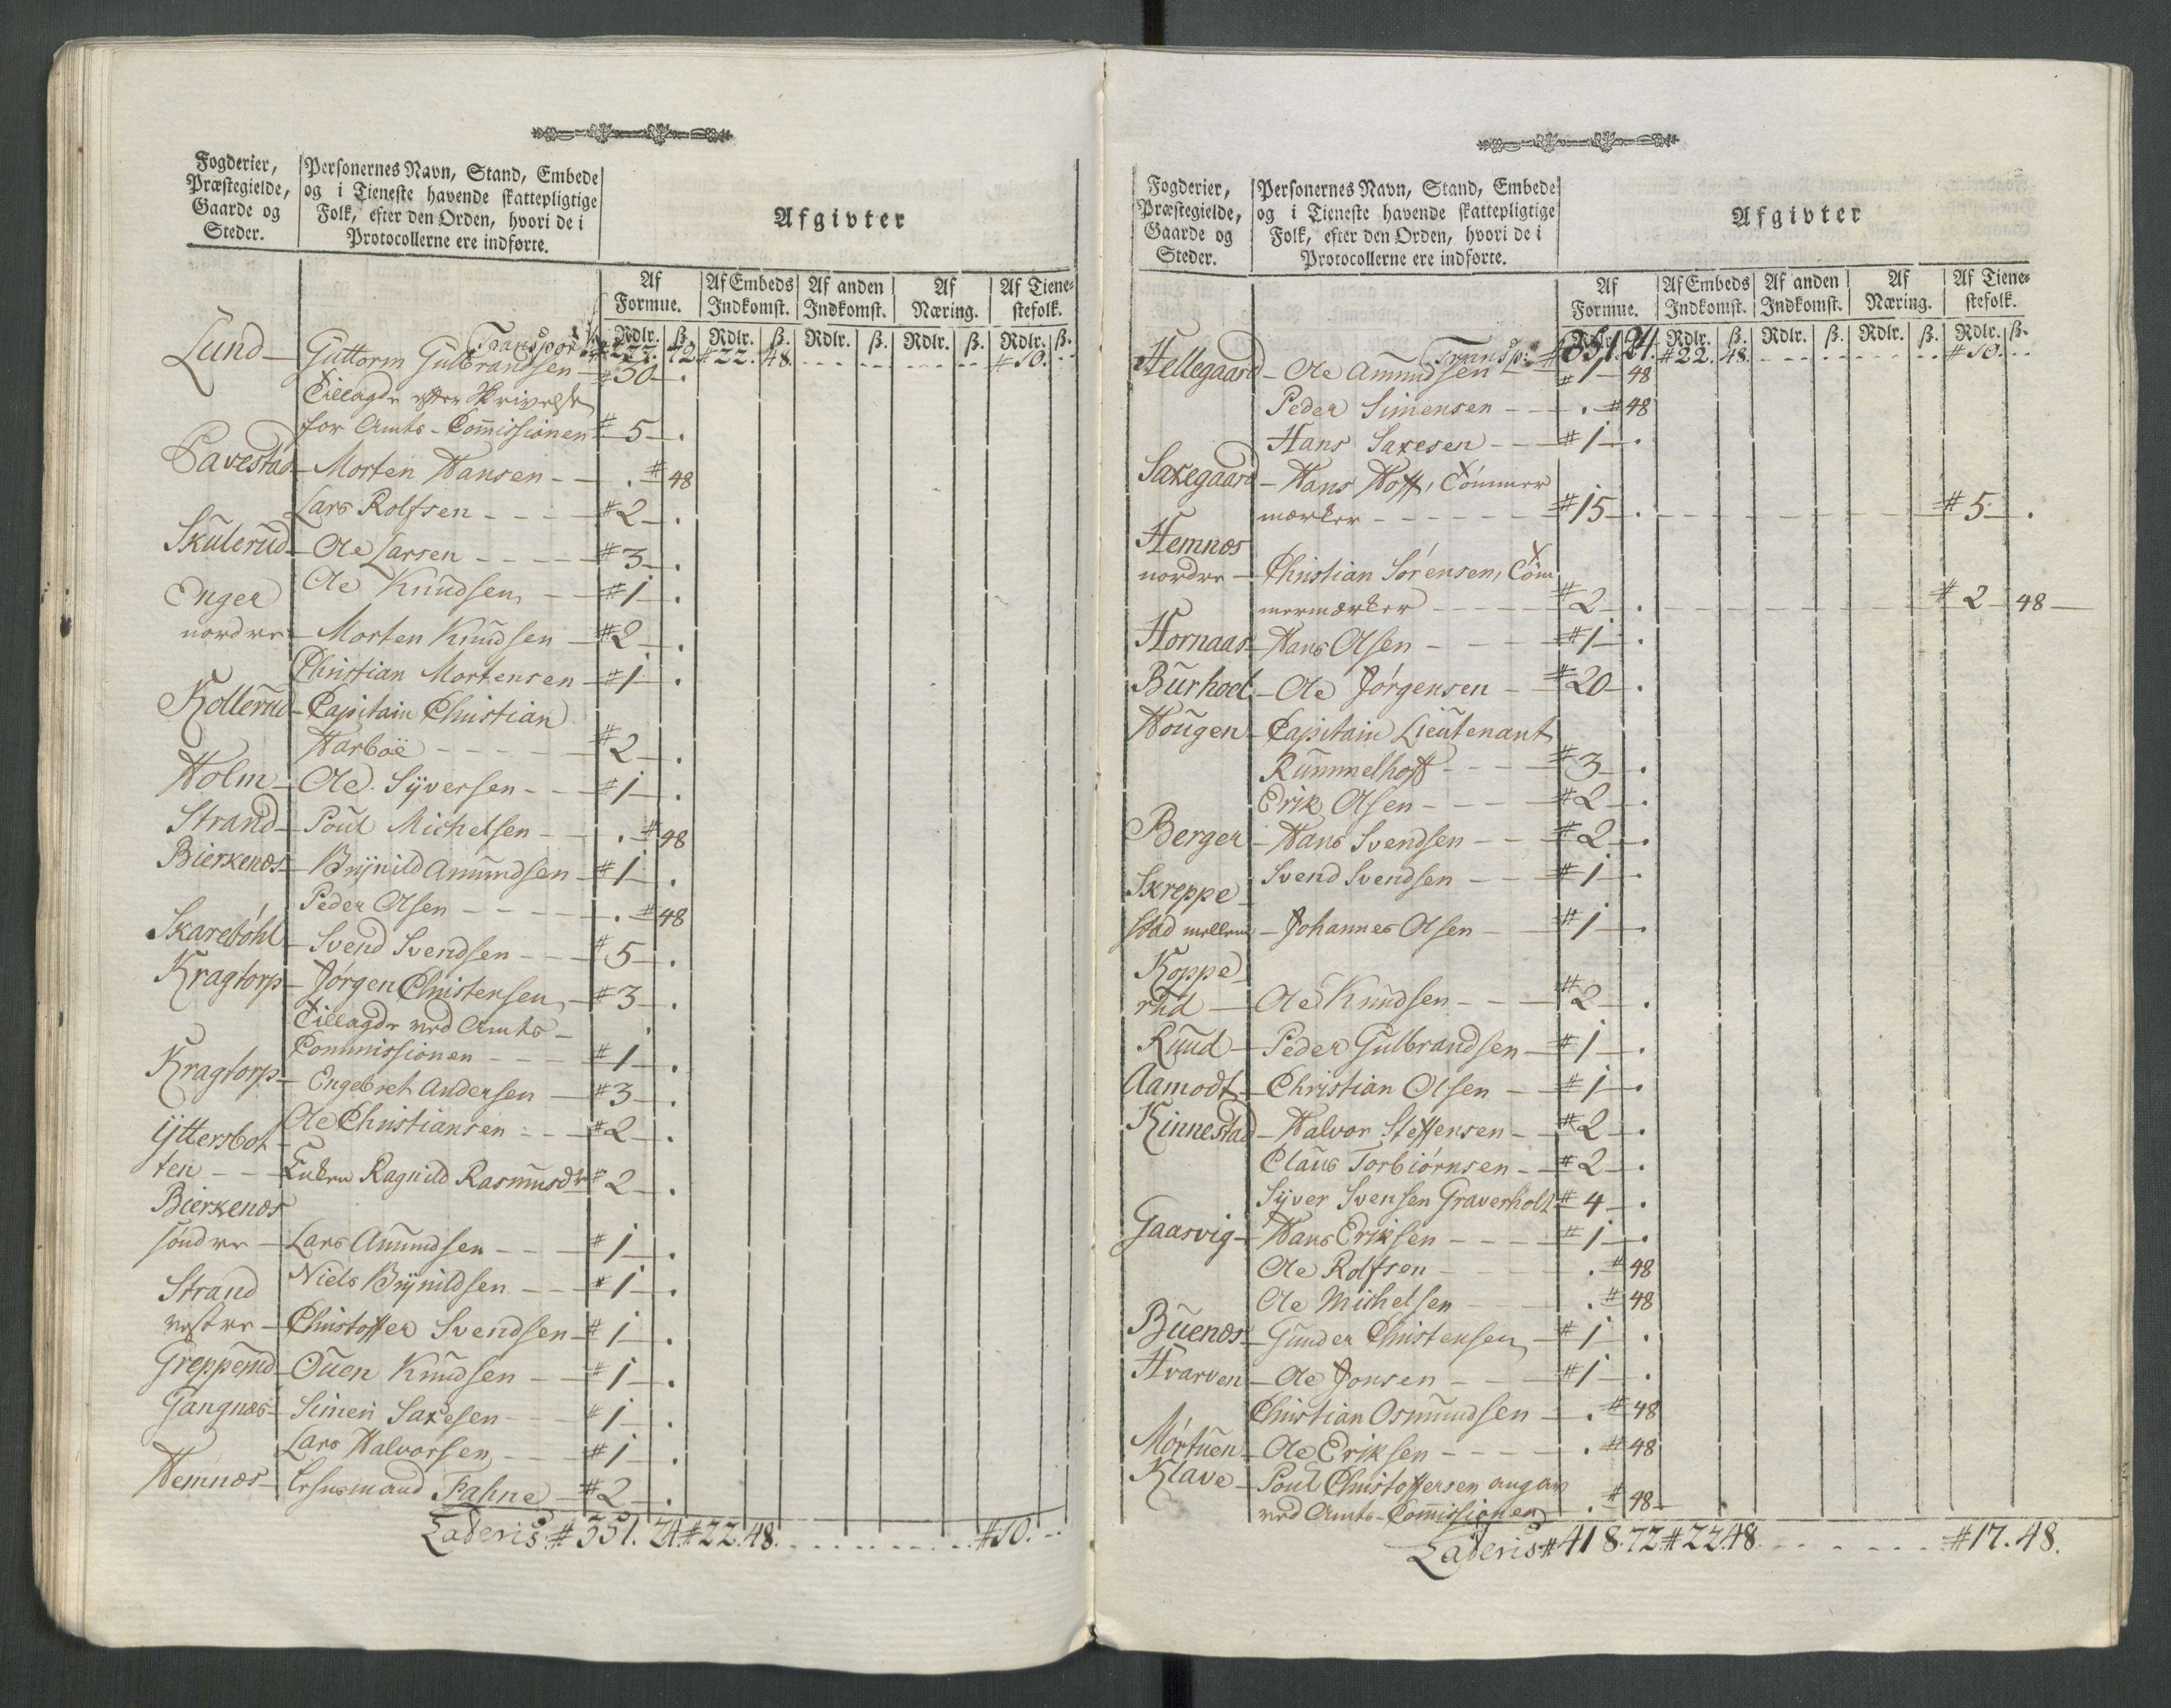 Fogderier,
Præstegielde,
Gaarde og
Steder.
Personernes Navn, Stand, Embede
og i Tieneste havende skattepligtige
Folk, efter den Orden, hvori de i
Protocollerne ere indførte.
Afgivter
Af Formue. Af Embeds Indkomst. Af anden Indkomst. Af Næring. Af Tienestefolk.
Rdlr. ß. Rdlr. ß. Rdlr. ß. Rdlr. ß. Rdlr. ß.
Transport # 277. 72 # 22. 48. - - - - - - - - # 10. - -
Lund - Guttorm Gulbrandsen - # 30 - .
Tillagde efter Skrivelse
for Amts-Com̄issionen # 5 - .
Pavestad - Morten Hansen - - . # 48
Lars Rolfsen - - - - # 2 - .
Skulerud - Ole Larsen - - - - # 3 - .
Enger Ole Knudsen - - # 1 - .
nordre - Morten Knudsen - # 2 - .
Christian Mortensen - # 1 - .
Kollerud - Capitain Christian
Harboe - - - - - # 2 - .
Holm - Ole Syversen - - # 1 - .
Strand - Poul Michelsen - - . # 48
Bierkenæs - Brynild Amundsen - # 1 - .
Peder Olsen - - - - . # 48
Skarebøhl - Svend Svendsen - - # 5 - .
Kragtorp - Jørgen Christensen - # 3 - .
Tillagde ved Amts-
Commissionen - - - # 1 - .
Kragtorp - Engebret Andersen - # 3 - .
Ole Christiansen - - # 2 - .
Yttersbot-
ten - - Enken Ragnild Rasmusdr # 2 - .
Bierkenæs
søndre - Lars Amundsen - - - # 1 - .
Niels Brynildsen - - # 1 - .
Strand
vestre - Christoffer Svendsen - # 1 - .
Grepperud - Ouen Knudsen - - # 1 - .
Gangnæs - Simen Saxesen - - # 1 - .
Lars Halvorsen - - # 1 - .
Hemnæs - Lehnsmand Fahne - # 2 - .
Lateris # 351. 24. # 22. 48. - - - - - - - - # 10. - -
Fogderier,
Præstegielde,
Gaarde og
Steder.
Personernes Navn, Stand, Embede
og i Tieneste havende skattepligtige
Folk, efter den Orden, hvori de i
Protocollerne ere indførte.
Afgivter
Af Formue. Af Embeds Indkomst. Af anden Indkomst. Af Næring. Af Tienestefolk.
Rdlr. ß. Rdlr. ß. Rdlr. ß. Rdlr. ß. Rdlr. ß.
Transp: # 351. 24. # 22. 48. - - - - - - - - # 10. - -
Hellegaard - Ole Amundsen - # 1 - 48
Peder Simensen - - - . # 48
Hans Saxesen - - # 1 - .
Saxegaard - Hans Hoff, Tømmer
mærker - - - - - - # 15 - . - - - - - - # 5 - .
Hemnæs
nordre - Christian Sørensen, Töm
mermærker - - - - - # 2 - . - - - - - - # 2 - 48 -
Hornaas - Hans Olsen - - - # 1 - .
Burhoel - Ole Jørgensen - # 20 - .
Hougen - Capitain Lieutenant
Rummelhoff - - - - # 3 - .
Erik Olsen - - - # 2 - .
Berger - Hans Svendsen - - # 2 - .
Svend Svendsen - - # 1 - .
Skreppe-
stad mellem - Johannes Olsen - # 1 - .
Koppe-
rud - Ole Knudsen - - # 2 - .
Ruud - Peder Gulbrandsen - # 1 - .
Aamodt - Christian Olsen - # 1 - .
Kinnestad - Halvor Steffensen - # 2 - .
Claus Torbiørnsen - # 2 - .
Syver Svensen Graverholt # 4 - .
Gaasvig - Hans Eriksen - - - - # 1 - .
Ole Rolfsen - - - . # 48
Ole Michelsen - - . # 48
Buenæs - Gunder Christensen - # 1 - .
Hvarven - Ole Jonsen - - - # 1 - .
Christian Osmundsen - . # 48
Mørtuen - Ole Eriksen - - - - . # 48
Klave - Poul Christoffersen angav
ved Amts-Com̄issionen . # 48 -
Lateris # 418. 72 # 22. 48. - - - - - - # 17. 48.